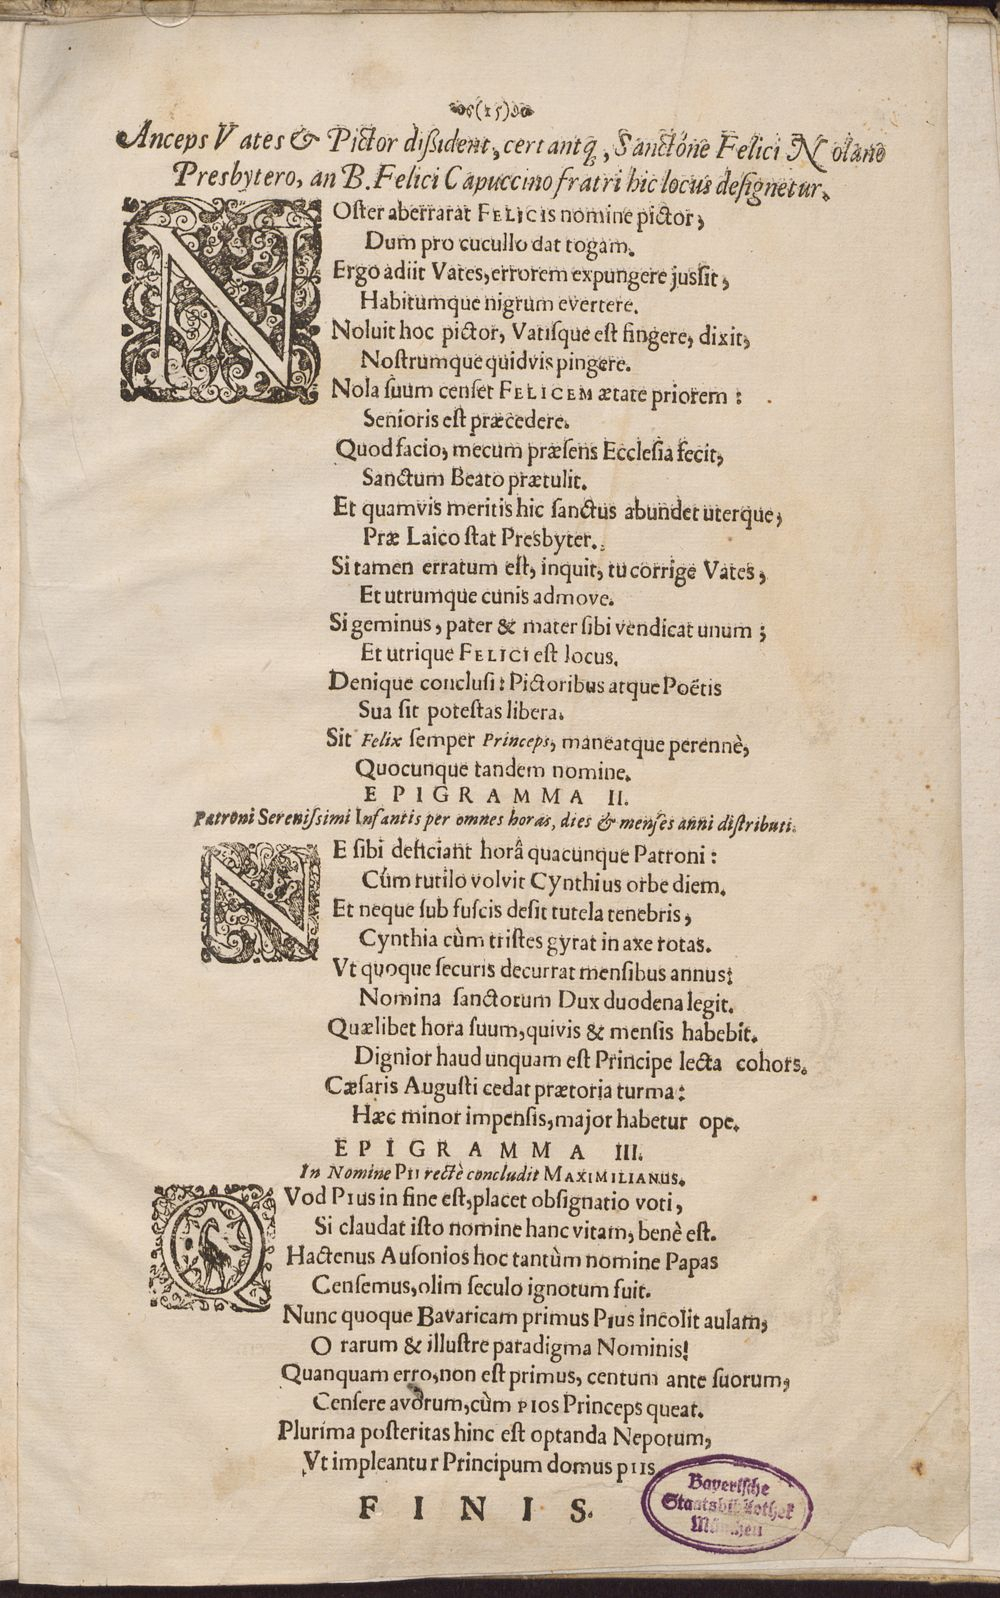 (15)
Anceps Vates & Pictor dißident, certantq́, Sanctóne Felici Nolano
Presbytero, an B. Felici Capuccino fratri hic locus designetur.
NOſter aberrarat FELICIS nomine pictor,
Dum pro cucullo dat togam.
Ergo adiit Vates, errorem expungere juſſit,
Habitumque nigrum evertere.
Noluit hoc pictor, Vatiſque eſt fingere, dixit,
Noſtrumque quidvis pingere.
Nola ſuum cenſet FELICEM ætate priorem:
Senioris eſt præcedere.
Quod facio, mecum præſens Eccleſia fecit,
Sanctum Beato prætulit.
Et quamvis meritis hic ſanctus abundet uterque,
Præ Laico ſtat Presbyter.
Si tamen erratum eſt, inquit, tu corrige Vates,
Et utrumque cunis admove.
Si geminus, pater & mater ſibi vendicat unum;
Et utrique FELICI eſt locus.
Denique concluſi: Pictoribus atque Poëtis
Sua ſit poteſtas libera.
Sit Felix ſemper Princeps, maneatque perennè,
Quocunque tandem nomine.
EPIGRAMMA II.
Patroni Sereniſsimi Infantis per omnes horas, dies & menſes anni diſtributi.
NE ſibi deficiant horâ quacunque Patroni:
Cúm rutilo volvit Cynthius orbe diem.
Et neque ſub fuſcis deſit tutela tenebris,
Cynthia cùm triſtes gyrat in axe rotas.
Vt quoque ſecuris decurrat menſibus annus:
Nomina ſanctorum Dux duodena legit.
Quælibet hora ſuum, quivis & menſis habebit.
Dignior haud unquam eſt Principe lecta cohors.
Cæſaris Auguſti cedat prætoria turma:
Hæc minor impenſis, major habetur ope.
EPIGRAMMA III.
In Nomine PII rectè concludit MAXIMILIANUS.
QVod PIUS in fine eſt, placet obſignatio voti,
Si claudat iſto nomine hanc vitam, benè eſt.
Hactenus Auſonios hoc tantùm nomine Papas
Cenſemus, olim ſeculo ignotum fuit.
Nunc quoque Bavaricam primus PIUS incolit aulam,
O rarum & illuſtre paradigma Nominis!
Quanquam erro, non eſt primus, centum ante ſuorum,
Cenſere avorum, cùm PIOS Princeps queat.
Plurima poſteritas hinc eſt optanda Nepotum,
Vt impleantur Principum domus PIIS
FINIS.
Bayerische
Staatsbibliothek
München